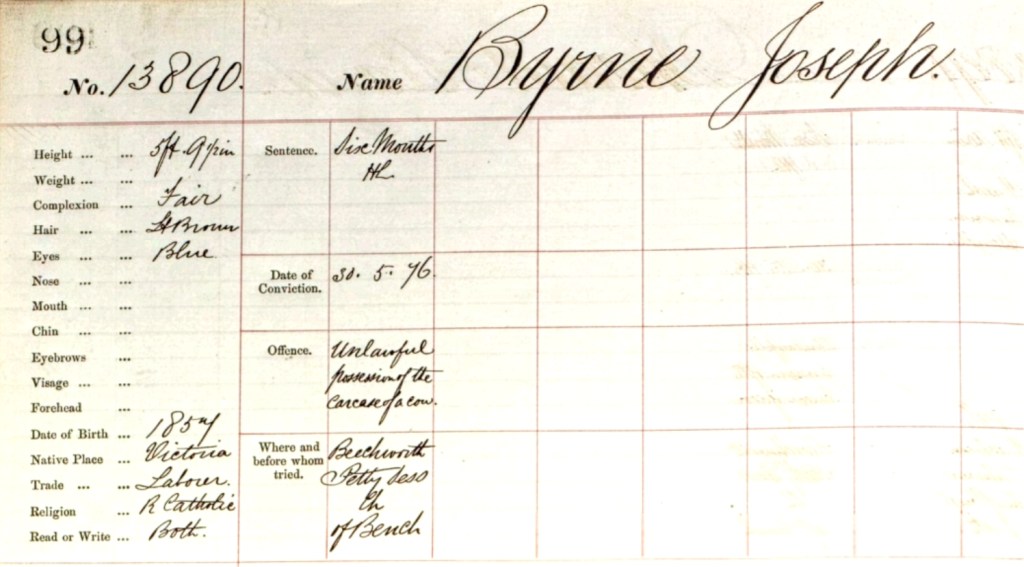 99
No. 13890. Name Byrne Joseph.
Height ... ... 5ft 9½in
Weight ... ...
Complexion ... Fair
Hair ... ... Lt Brown
Eyes ... ... Blue
Nose ... ...
Mouth ... ...
Chin ... ...
Eyebrows ...
Visage ... ...
Forehead ...
Date of Birth ... 1857
Native Place ... Victoria
Trade ... ... Laborer.
Religion ... R Catholic
Read or Write ... Both.
Sentence. Six Months
HL.
Date of
Conviction. 30. 5. 76.
Offence. Unlawful
possession of the
carcase of a cow.
Where and
before whom
tried.
Beechworth
Petty Sess
Ch
of Bench